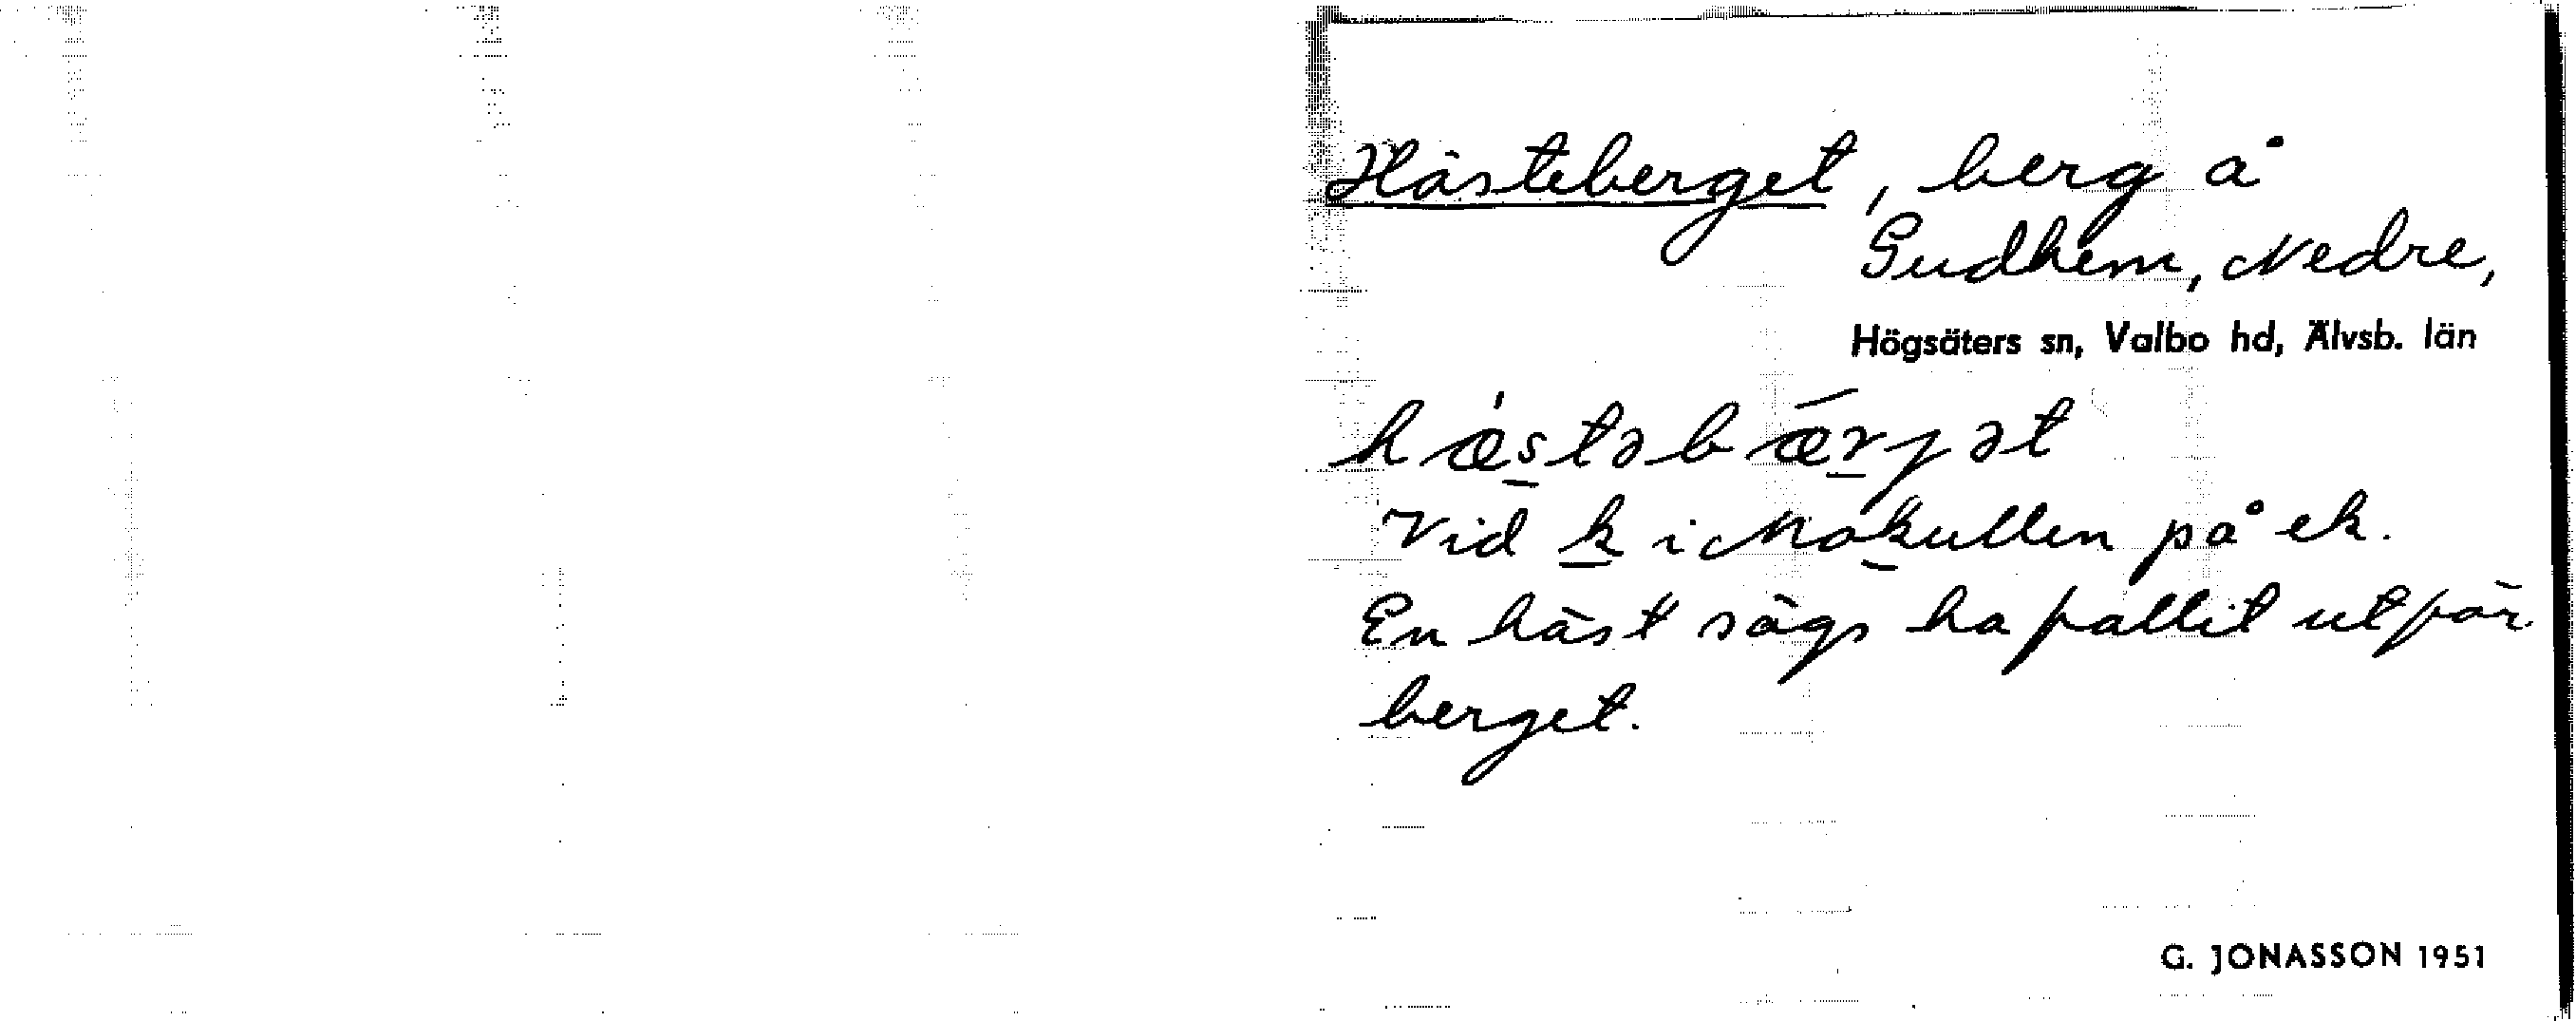 Hästeberget, berg å
Gudhem, Nedre,
Högsäters sn, Valbo hd, Älvsb. län
hæ̀stəbǽrjət
Vid k i Mokullen på ek.
En häst sägs ha fallit utför
berget.
G. JONASSON 1951